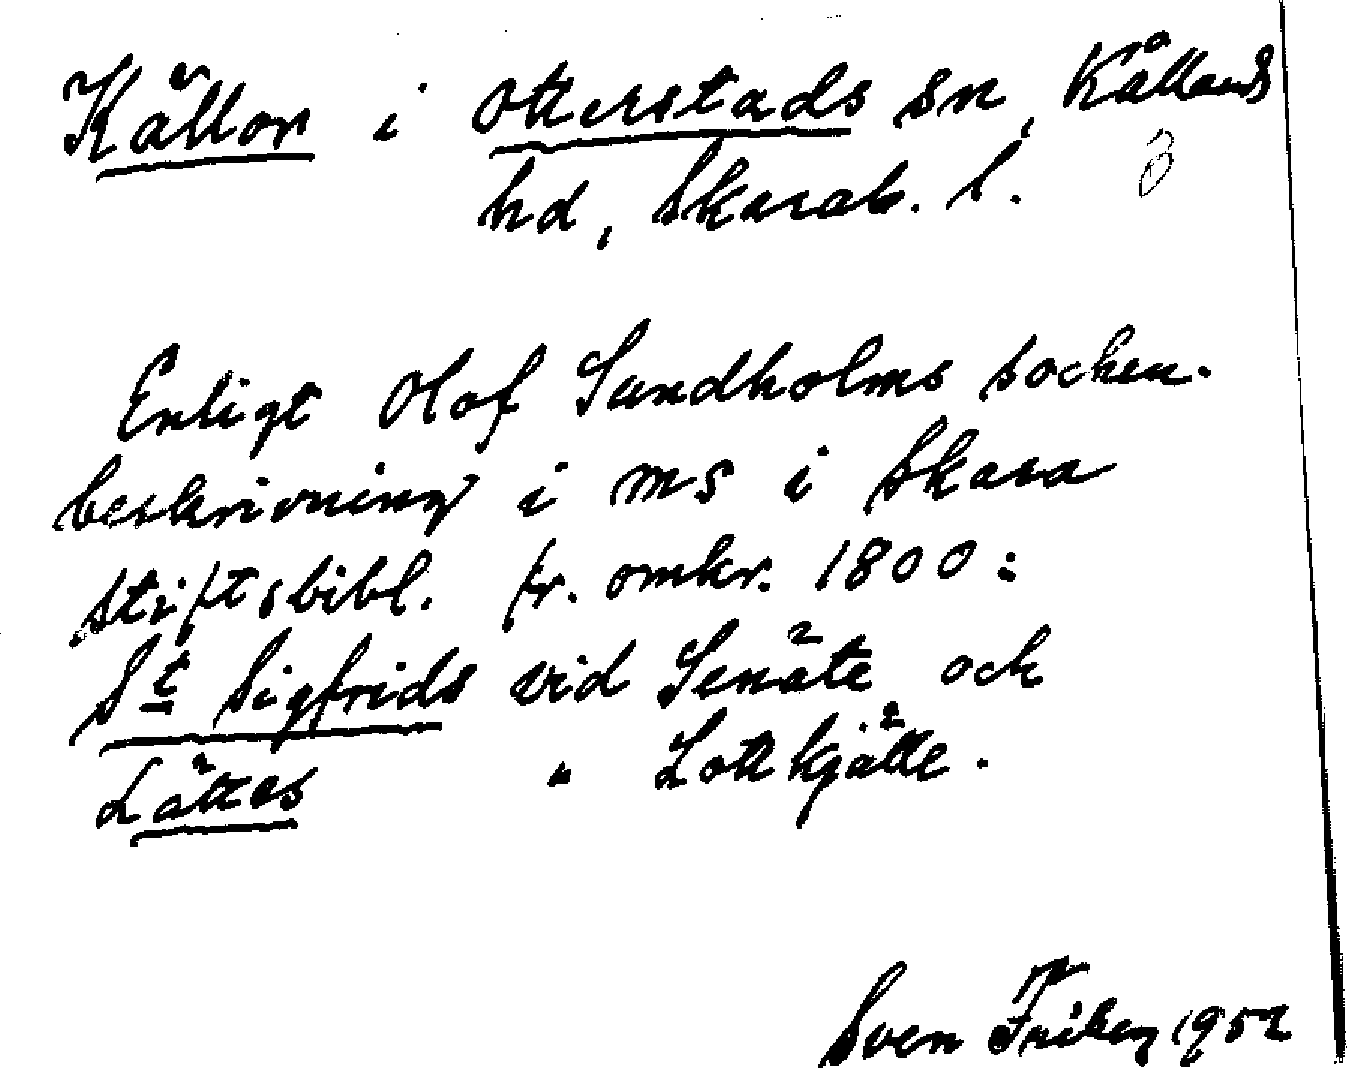 Källor i Otterstads sn, Kållands
hd, Skarab. l.
Enligt Olof Sundholms socken-
beskrivning i ms i Skara
stiftsbibl. fr. omkr. 1800:
St Sigfrids vid Senäte och
Lättes " Lottkjätte.
Sven 1952